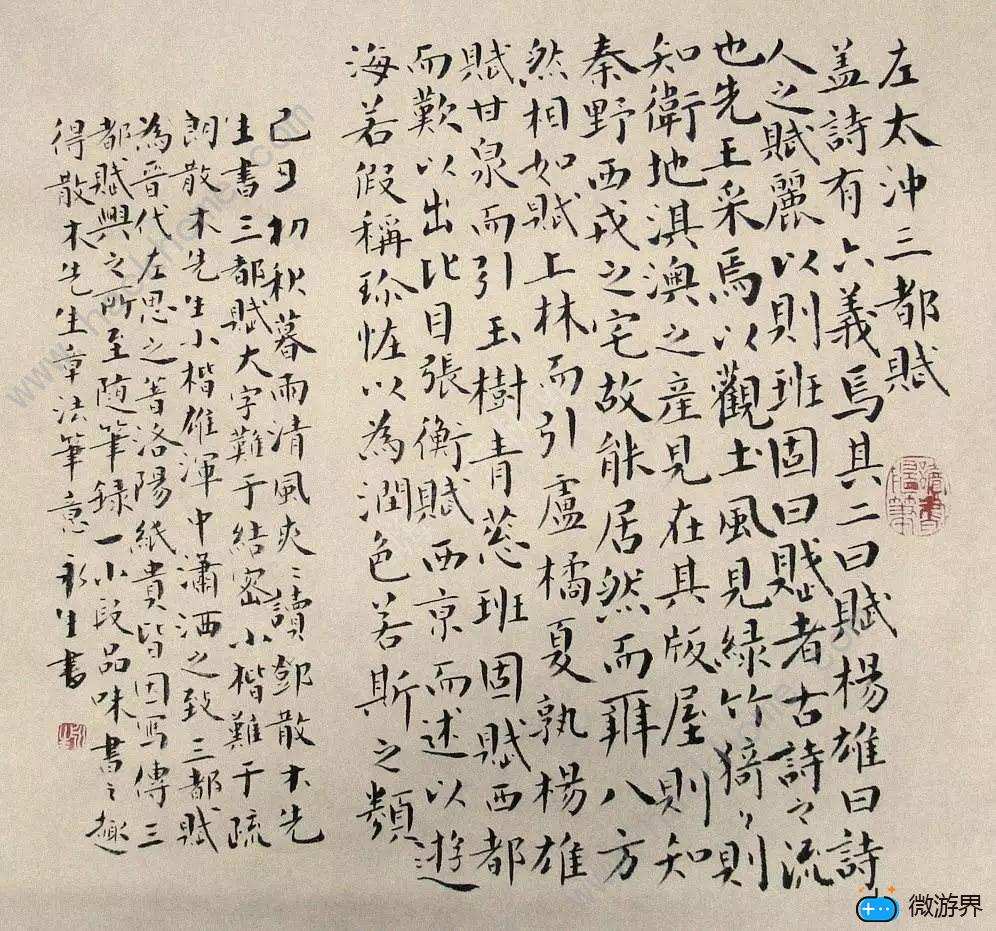 左太沖三都賦
盖詩有六義焉其二曰賦楊雄曰詩
人之賦麗以則班固曰賦者古詩之流
也先王采焉以觀土風見緑竹猗〻則
知衛地淇澳之産見在其版屋則知
秦野西戎之宅故能居然而辨八方
然相如賦上林而引盧橘夏孰楊雄
賦甘泉而引玉樹青葱班固賦西都
而歎以出比目張衡賦西京而述以遊
海若假稱珎恠以為潤色若斯之類
己丑初秋暮雨清風爽〻讀鄧散木先
生書三都賦大字難于結密小楷難于疏
朗散木先生小楷雄渾中瀟洒之致三都賦
為晉代左思之著洛陽紙貴皆因寫傳三
都賦興之所至随筆録一小段品味書之趣
得散木先生章法筆意永生書
www.hackhome.com
微游界